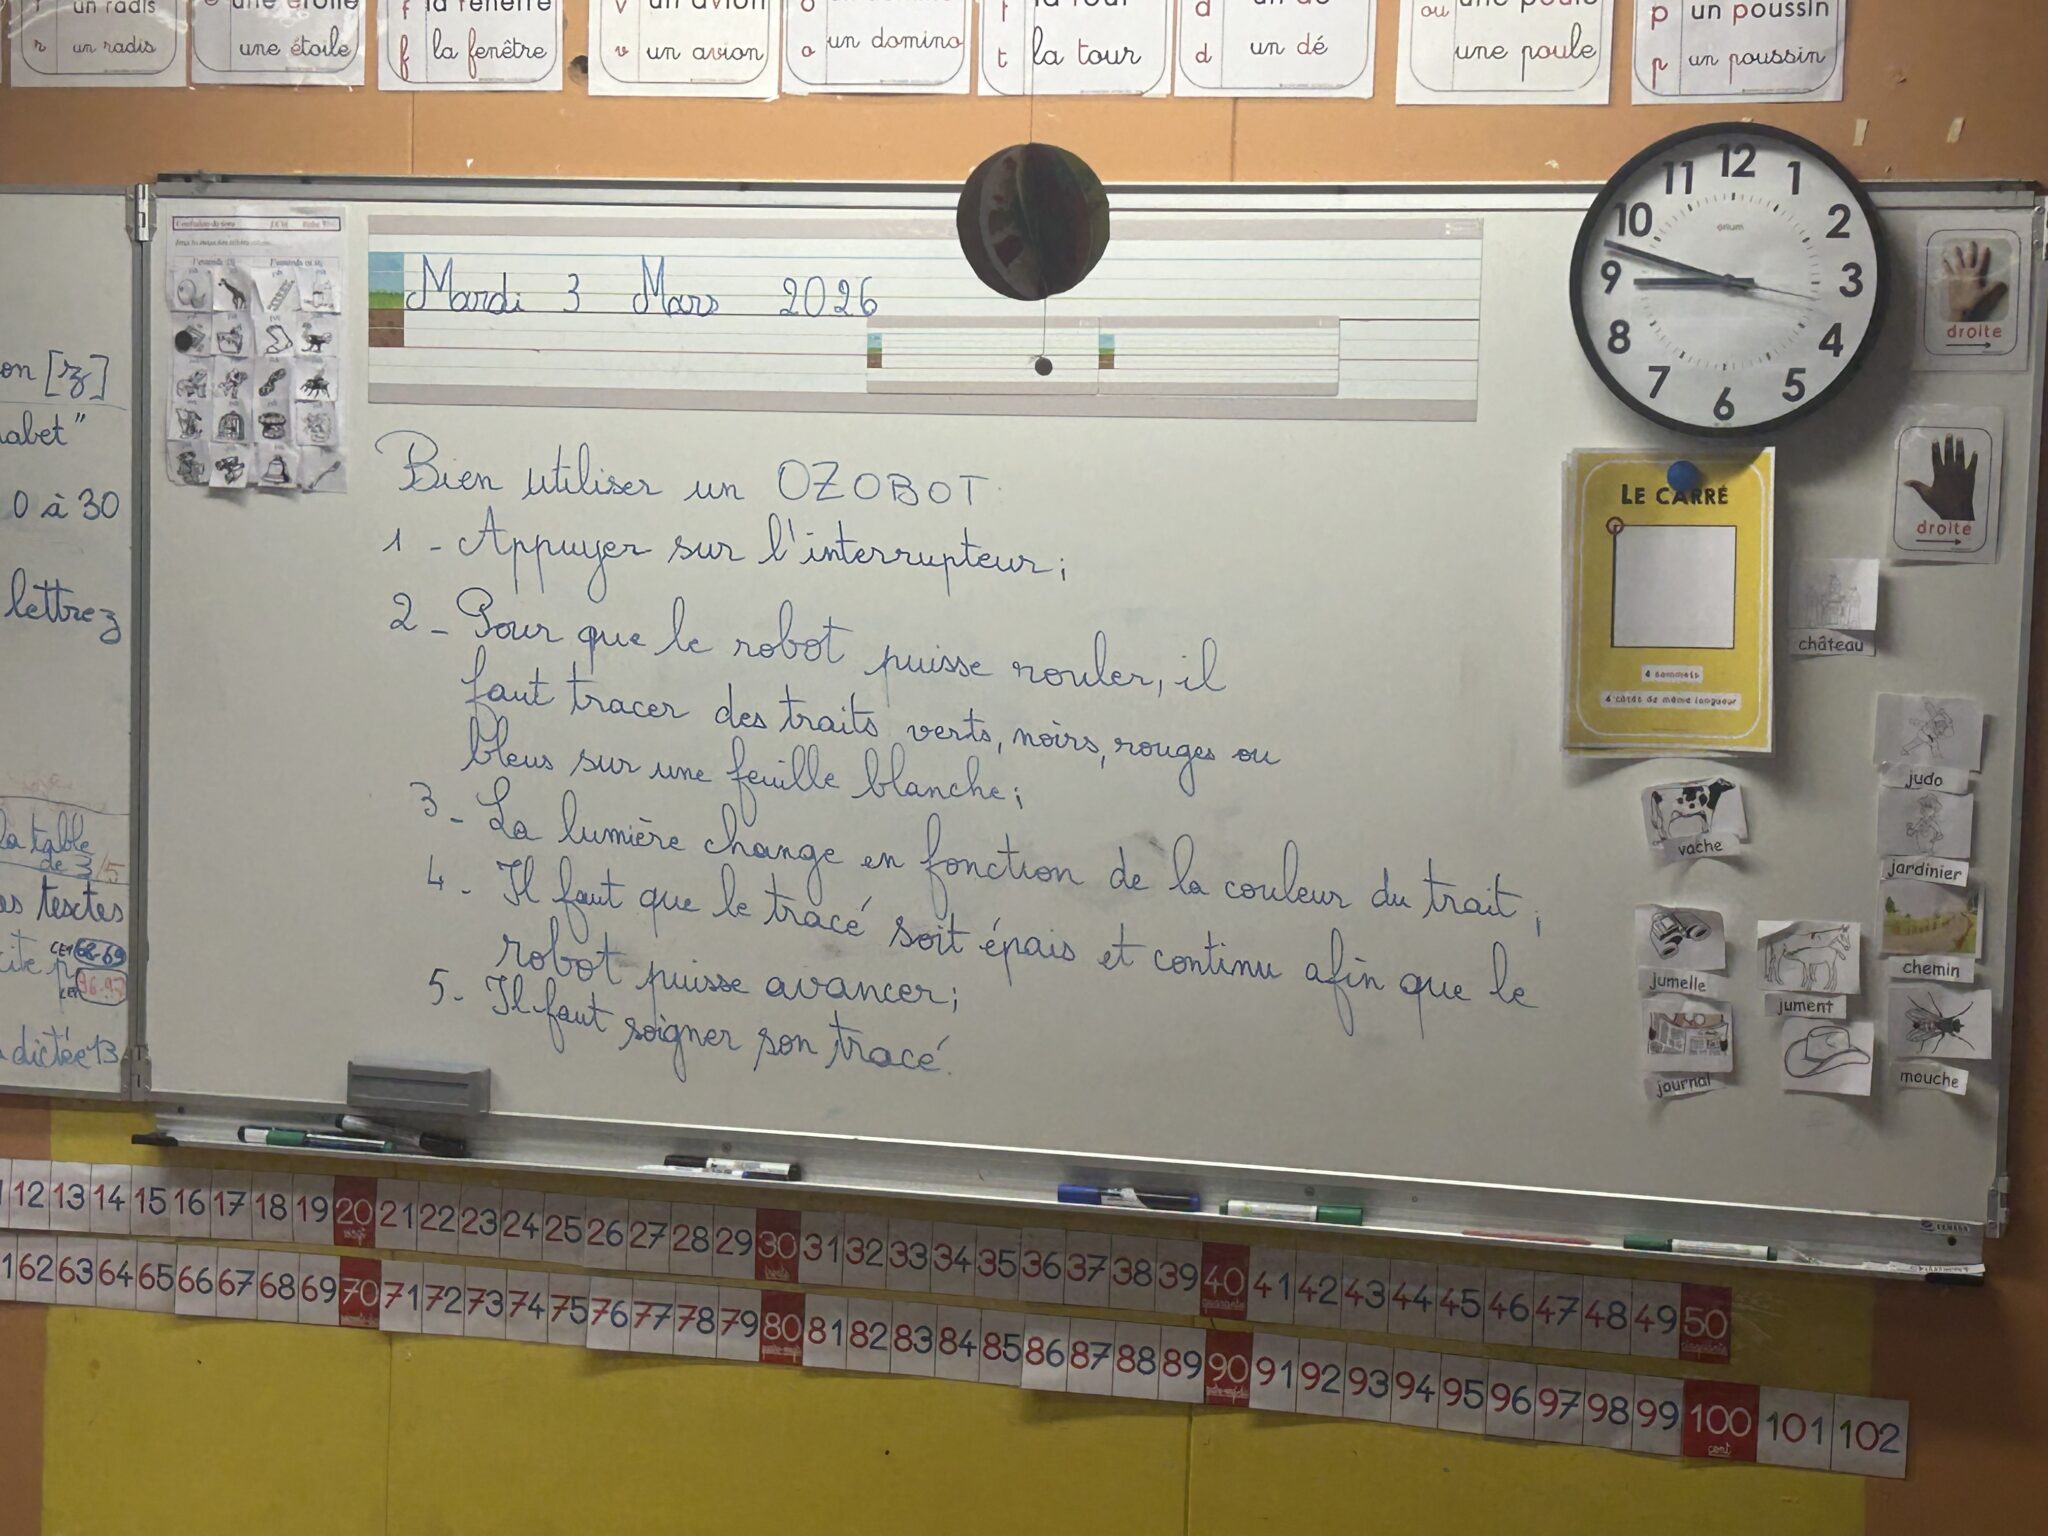 un radis
un radis
une étoile
une étoile
f la fenêtre
f la fenêtre
v un avion
v un avion
o un domino
o un domino
t la tour
t la tour
d un dé
d un dé
ou une poule
une poule
p un poussin
p un poussin
on [z]
abet"
0 à 30
lettrez
la table
de 3/5
textes
CE1 68-69
96-97
dictée 13
Mardi 3 Mars 2026
Bien utiliser un OZOBOT
1 - Appuyer sur l'interrupteur;
2 - Pour que le robot puisse rouler, il
faut tracer des traits verts, noirs, rouges ou
bleus sur une feuille blanche;
3 - La lumière change en fonction de la couleur du trait;
4 - Il faut que le tracé soit épais et continu afin que le
robot puisse avancer;
5 - Il faut soigner son tracé.
12 1 2 3 4 5 6 7 8 9 10 11
orium
droite
droite
LE CARRÉ
4 sommets
4 côtés de même longueur
château
judo
vache
jardinier
jumelle
jument
chemin
journal
mouche
12 13 14 15 16 17 18 19 20 21 22 23 24 25 26 27 28 29 30 31 32 33 34 35 36 37 38 39 40 41 42 43 44 45 46 47 48 49 50
62 63 64 65 66 67 68 69 70 71 72 73 74 75 76 77 78 79 80 81 82 83 84 85 86 87 88 89 90 91 92 93 94 95 96 97 98 99 100 101 102
cent